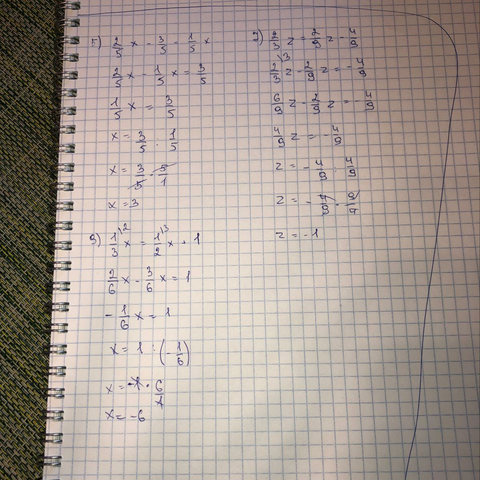 1) 2/5 x - 3/5 = 1/5 x
2/5 x - 1/5 x = 3/5
1/5 x = 3/5
x = 3/5 : 1/5
x = 3/5 · 5/1
x = 3
2) 2/3 z = 2/9 z - 4/9
2/3 \3 z - 2/9 z = - 4/9
6/9 z - 2/9 z = - 4/9
4/9 z = - 4/9
z = - 4/9 : 4/9
z = - 4/9 · 9/4
z = -1
3) 1/3 \2 x = 1/2 \3 x + 1
2/6 x - 3/6 x = 1
- 1/6 x = 1
x = 1 : (- 1/6)
x = -1 · 6/1
x = -6